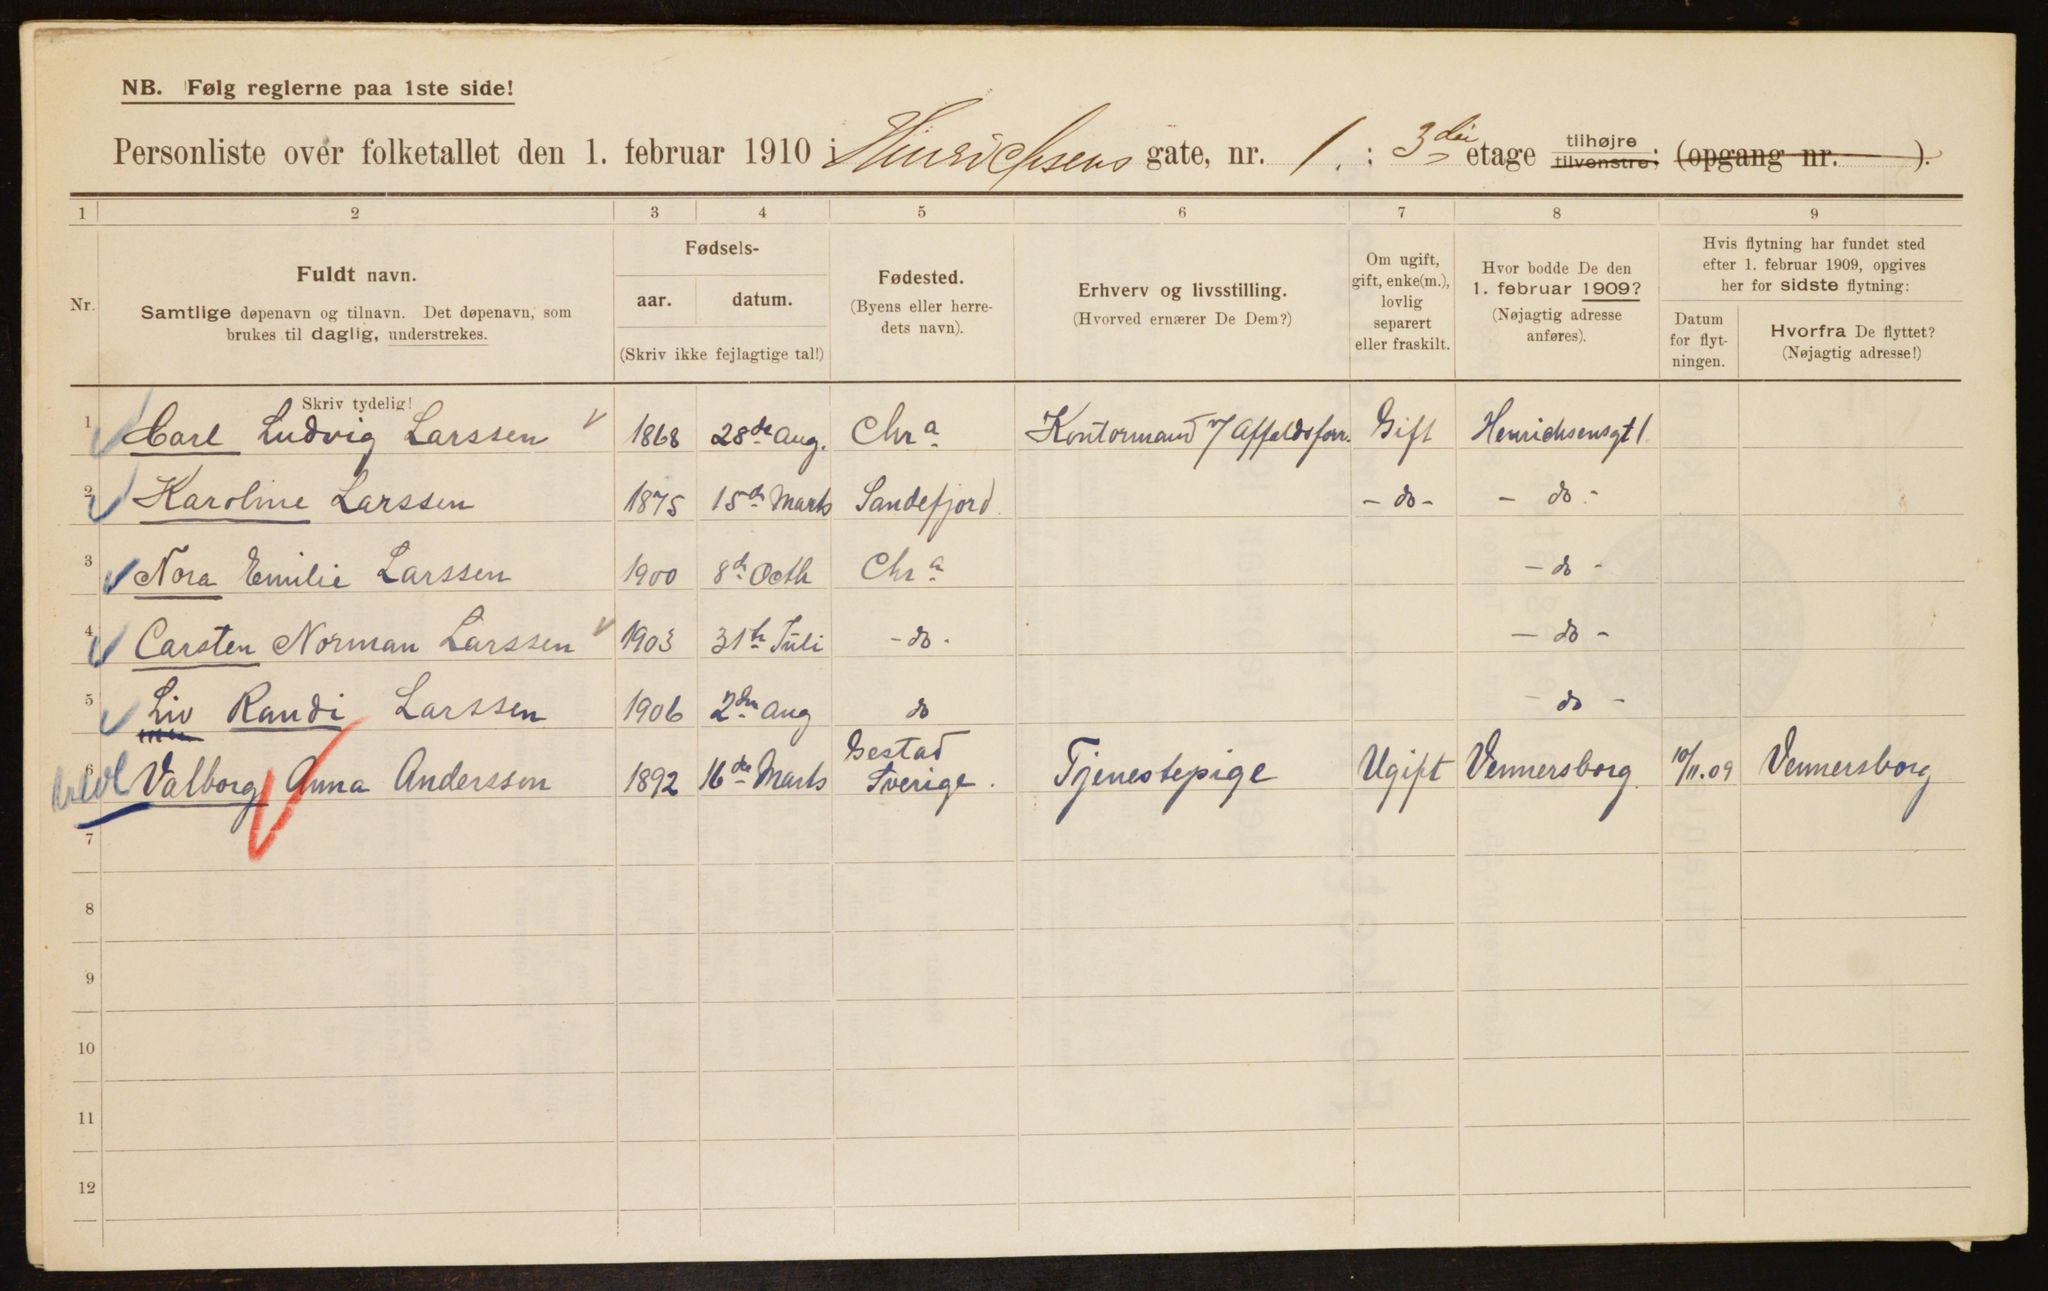 NB. Følg reglerne paa 1ste side!
Personliste over folketallet den 1. februar 1910 i Hinrichsens gate, nr. 1. : 3die etage tilhøjre tilvenstre; (opgang nr. ).
1 2 3 4 5 6 7 8 9
Nr.
Fuldt navn.
Samtlige døpenavn og tilnavn. Det døpenavn, som
brukes til daglig, understrekes.
Fødsels-
aar. datum.
(Skriv ikke fejlagtige tal!)
Fødested.
(Byens eller herre-
dets navn).
Erhverv og livsstilling.
(Hvorved ernærer De Dem?)
Om ugift,
gift, enke(m.),
lovlig
separert
eller fraskilt.
Hvor bodde De den
1. februar 1909?
(Nøjagtig adresse
anføres).
Hvis flytning har fundet sted
efter 1. februar 1909, opgives
her for sidste flytning:
Datum
for flyt-
ningen.
Hvorfra De flyttet?
(Nøjagtig adresse!)
Skriv tydelig!
1 Carl Ludvig Larssen 1868 28de Aug. Chra Kontormand v/ Affaldsforr. Gift Henrichsensgt 1.
2 Karoline Larssen 1875 15de Marts Sandefjord. - do - - do -
3 Nora Emilie Larssen 1900 8de Octb Chra - do -
4 Carsten Norman Larssen 1903 31te Juli - do - - do -
5 Liv Randi Larssen 1906 2den Aug do - do -
6 Valborg Anna Andersson 1892 16de Marts Gestad Sverige. Tjenestepige Ugift Vennersborg. 10/11.09 Vennersborg
7
8
9
10
11
12